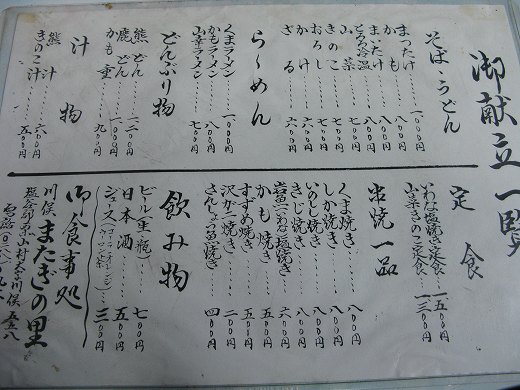 御献立一覧
そば・うどん
まつたけ……一〇〇〇円
かも……八〇〇円
またたけ……八〇〇円
とろろ冷温……八〇〇円
山菜……七〇〇円
きのこ……七〇〇円
おろし……七〇〇円
かけ……五〇〇円
ざる……五〇〇円
らーめん
くまラーメン……一〇〇〇円
かもラーメン……八〇〇円
山菜ラーメン……七〇〇円
どんぶり物
熊どん……一二〇〇円
鹿どん……一〇〇〇円
かも重……九〇〇円
汁物
熊汁……六〇〇円
きのこ汁……五〇〇円
定食
いわな塩焼き定食……一五〇〇円
山菜きのこ定食……一三〇〇円
串焼一品
くま焼き……八〇〇円
しか焼き……八〇〇円
いのし焼き……八〇〇円
きじ焼き……八〇〇円
岩魚(いわな)塩焼き……六〇〇円
かも焼き……五〇〇円
すずめ焼き……五〇〇円
沢がに焼き……二〇〇円
さんしょううお焼き……四〇〇円
飲み物
ビール(生,瓶)……七〇〇円
日本酒……五〇〇円
ジュース……三〇〇円
御食事処
川俣 またぎの里
塩谷郡栗山村大字川俣 五五八